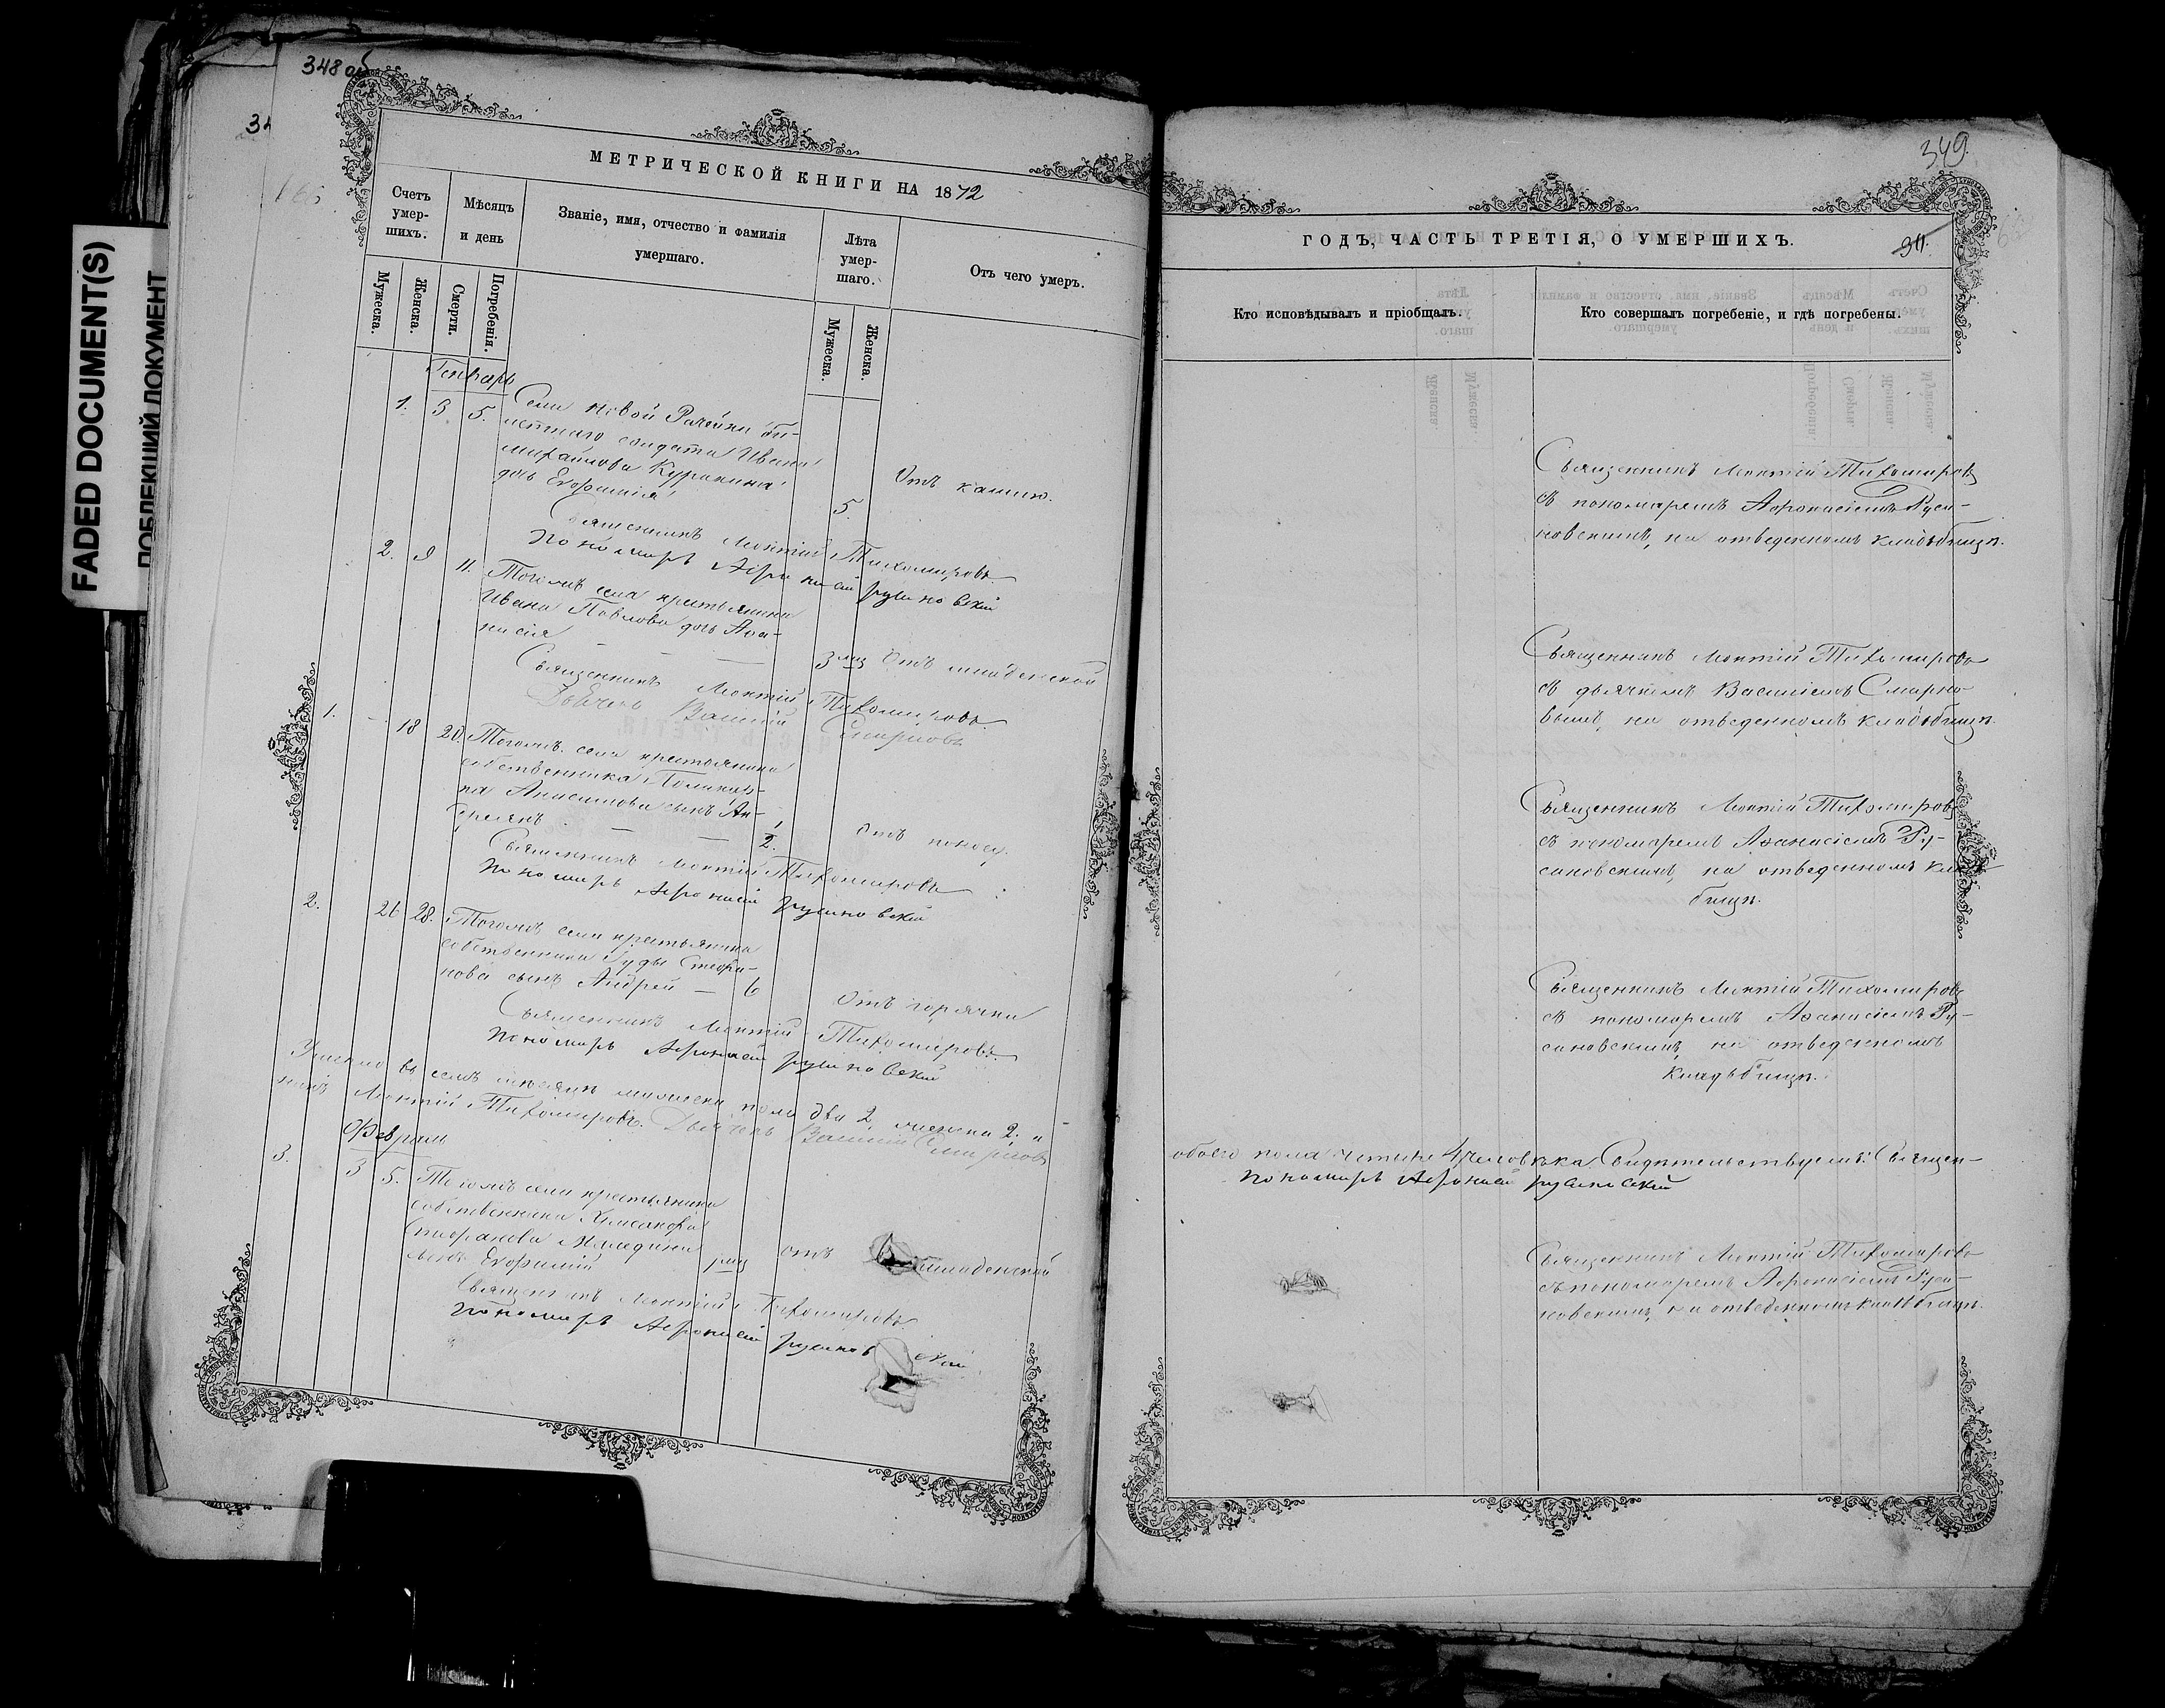 348 об
FADED DOCUMENT(S)
ПОБЛЕКШИЙ ДОКУМЕНТ
МЕТРИЧЕСКОЙ КНИГИ НА 1872
Счетъ умер-шихъ.
Мѣсяцъ и день
Званіе, имя, отчество и фамилія умершаго.
Лѣта умер-шаго.
Отъ чего умеръ.
Мужеска.
Женска.
Смерти.
Погребенія.
Мужеска.
Женска.
Генварь
1. 3 5. Села Новой Рачейки би-
летнаго солдата Ивана
Михайлова Куракина
дочь Евфимія 5. Отъ кашлю.
Священникъ Леонтій Тихомировъ
Пономарь Афонасій Русиновскій
2. 9 11. Тогожъ села крестьянина
Ивана Павлова дочь Ана-
насія 3 мц Отъ младенской
Священникъ Леонтій Тихомировъ
Дьячекъ Василій Смирновъ
1. 18 20. Тогожъ села крестьянина
собственника Поликар-
па Анисимова сынъ Ан-
1/2. Отъ поносу.
Священникъ Леонтій Тихомировъ
Пономарь Афонасій Русиновскій
2. 26 28. Тогожъ села крестьянина
собственника Іуды Стефа-
нова сынъ Андрей — 6 Отъ горячки
Священникъ Леонтій Тихомировъ
Пономарь Афонасій Русиновскій
Умерло въ семъ мѣсяцѣ мужеска пола два 2, женска 2; и
никъ Леонтій Тихомировъ. Дьячекъ Василій Смирновъ
Февраль
3. 3 5. Тогожъ села крестьянина
собственника
Стефанова
сынъ Евфимій 1 мц отъ младенской
Священникъ Леонтій Тихомировъ
Пономарь Афонасій Русиновскій
349.
ГОДЪ, ЧАСТЬ ТРЕТІЯ, О УМЕРШИХЪ.
Кто исповѣдывалъ и пріобщалъ.
Кто совершалъ погребеніе, и гдѣ погребены.
Священникъ Леонтій Тихомировъ
съ пономаремъ Афонасіемъ Руси-
новскимъ, на отведенномъ кладбищѣ.
Священникъ Леонтій Тихомировъ
съ дьячкомъ Василіемъ Смирно-
вымъ, на отведенномъ кладбищѣ.
Священникъ Леонтій Тихомировъ
съ пономаремъ Аѳанасіемъ Ру-
синовскимъ, на отведенномъ клад-
бищѣ.
Священникъ Леонтій Тихомировъ
съ пономаремъ Аѳанасіемъ Ру-
синовскимъ, на отведенномъ
кладьбищѣ.
обоего пола четыре 4 человѣка. Свидѣтельствуемъ: Священ-
Пономарь Афонасій Русиновскій
Священникъ Леонтій Тихомировъ
съ пономаремъ Афонасіемъ Руси-
новскимъ, на отведенномъ кладбищѣ.